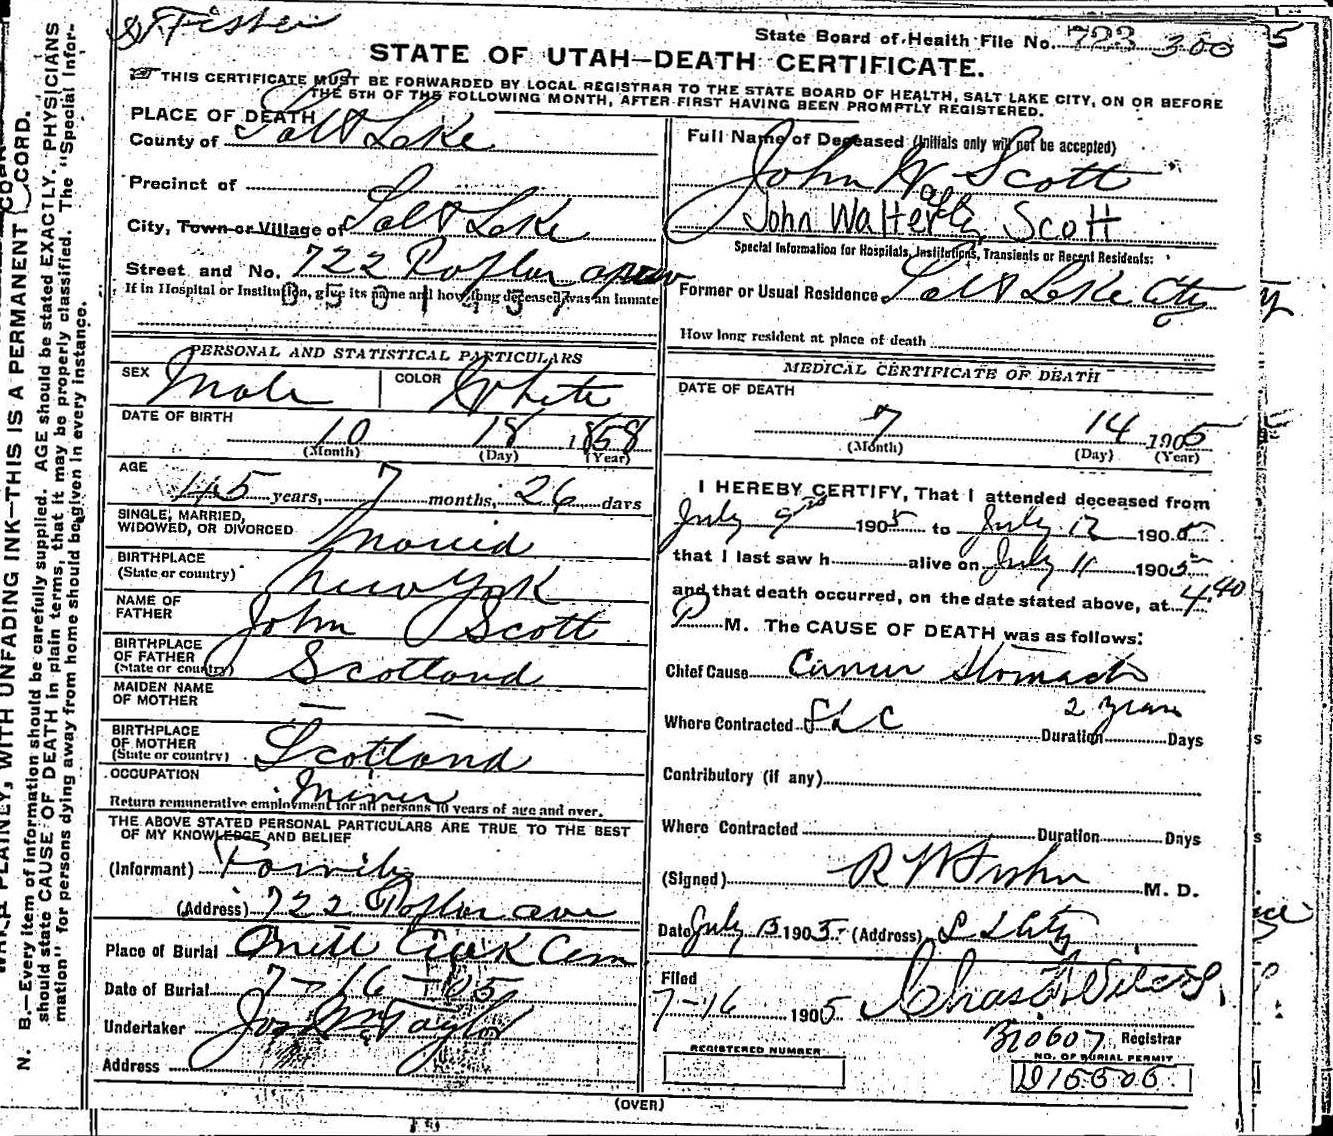 Fisher
State Board of Health File No. 723 300
STATE OF UTAH—DEATH CERTIFICATE.
THIS CERTIFICATE MUST BE FORWARDED BY LOCAL REGISTRAR TO THE STATE BOARD OF HEALTH, SALT LAKE CITY, ON OR BEFORE
THE 5TH OF THE FOLLOWING MONTH, AFTER FIRST HAVING BEEN PROMPTLY REGISTERED.
PLACE OF DEATH
County of Salt Lake
Precinct of
City, Town or Village of Salt Lake
Street and No. 722 Poplar
If in Hospital or Institution, give its name and how long deceased was an inmate
PERSONAL AND STATISTICAL PARTICULARS
SEX Male COLOR White
DATE OF BIRTH
10 18 1858
(Month) (Day) (Year)
AGE
45 years, 7 months, 26 days
SINGLE, MARRIED,
WIDOWED, OR DIVORCED Maried
BIRTHPLACE
(State or country) New York
NAME OF
FATHER John Scott
BIRTHPLACE
OF FATHER
(State or country) Scotland
MAIDEN NAME
OF MOTHER — —
BIRTHPLACE
OF MOTHER
(State or country) Scotland
OCCUPATION Miner
Return remunerative employment for all persons 10 years of age and over.
THE ABOVE STATED PERSONAL PARTICULARS ARE TRUE TO THE BEST
OF MY KNOWLEDGE AND BELIEF
(Informant) Family
(Address) 722 Poplar ave
Place of Burial Mill Creek Cem
Date of Burial 7-16-05
Undertaker Jos Wm Taylor
Address
Full Name of Deceased (Initials only will not be accepted)
John W Scott
John Walter Scott
Special Information for Hospitals, Institutions, Transients or Recent Residents:
Former or Usual Residence Salt Lake City
How long resident at place of death
MEDICAL CERTIFICATE OF DEATH
DATE OF DEATH
7 14 1905
(Month) (Day) (Year)
I HEREBY CERTIFY, That I attended deceased from
July 9 1905 to July 12 1905
that I last saw h alive on July 11 1905
and that death occurred, on the date stated above, at 4.40
P M. The CAUSE OF DEATH was as follows:
Chief Cause Cancer Stomach
2 years
Where Contracted S L C Duration Days
Contributory (if any)
Where Contracted Duration Days
(Signed) R W Fisher M. D.
Date July 13 1905 (Address) S L City
Filed
7-16 1905 Chas F Wilcox
Registrar
REGISTERED NUMBER
NO. OF BURIAL PERMIT
(OVER)
WITH UNFADING INK—THIS IS A PERMANENT RECORD.
N. B.—Every item of information should be carefully supplied. AGE should be stated EXACTLY. PHYSICIANS
should state CAUSE OF DEATH in plain terms, that it may be properly classified. The "Special Infor-
mation" for persons dying away from home should be given in every instance.